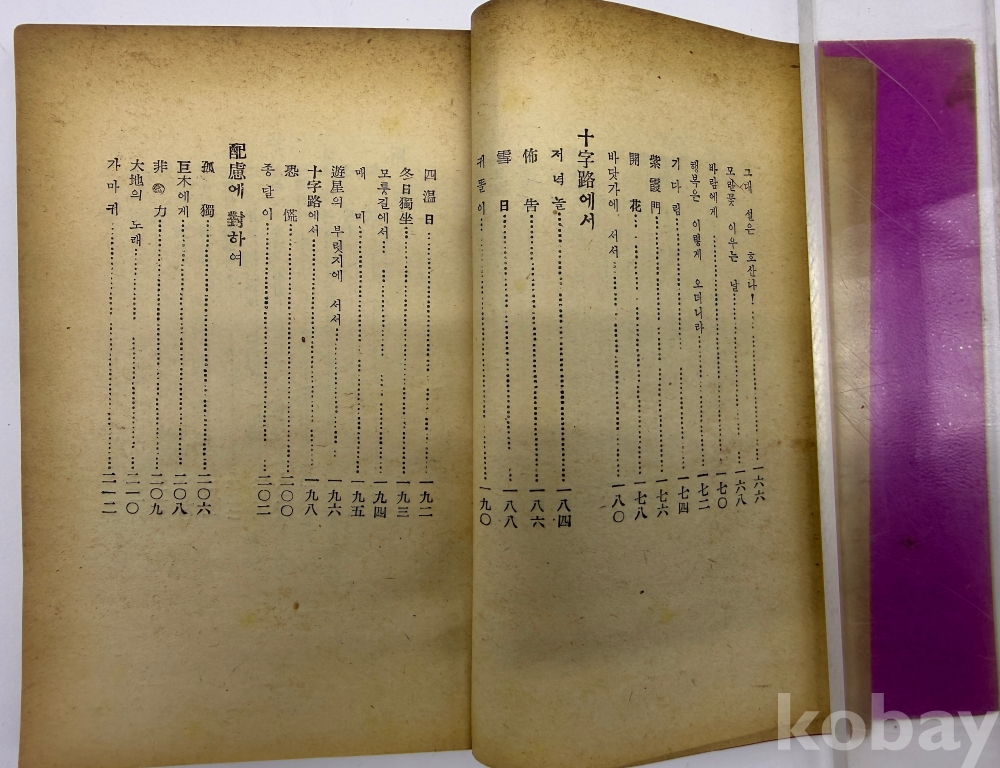 그대 설은 호산나!……一六六
모란꽃 이우는 날……一六八
바람에게……一七〇
행복은 이렇게 오더니라……一七二
기다림……一七四
紫霞門……一七六
開花……一七八
바닷가에 서서……一八〇
十字路에서
저녁놀……一八四
佈告……一八六
雪日……一八八
귀뚤이……一九〇
四溫日……一九二
冬日獨坐……一九三
모롱길에서……一九四
매미……一九五
遊星의 부릿지에 서서……一九六
十字路에서……一九八
恐慌……二〇〇
종달이……二〇二
配慮에 對하여
孤獨……二〇六
巨木에게……二〇八
非力……二〇九
大地의 노래……二一〇
가마귀……二一二
kobay